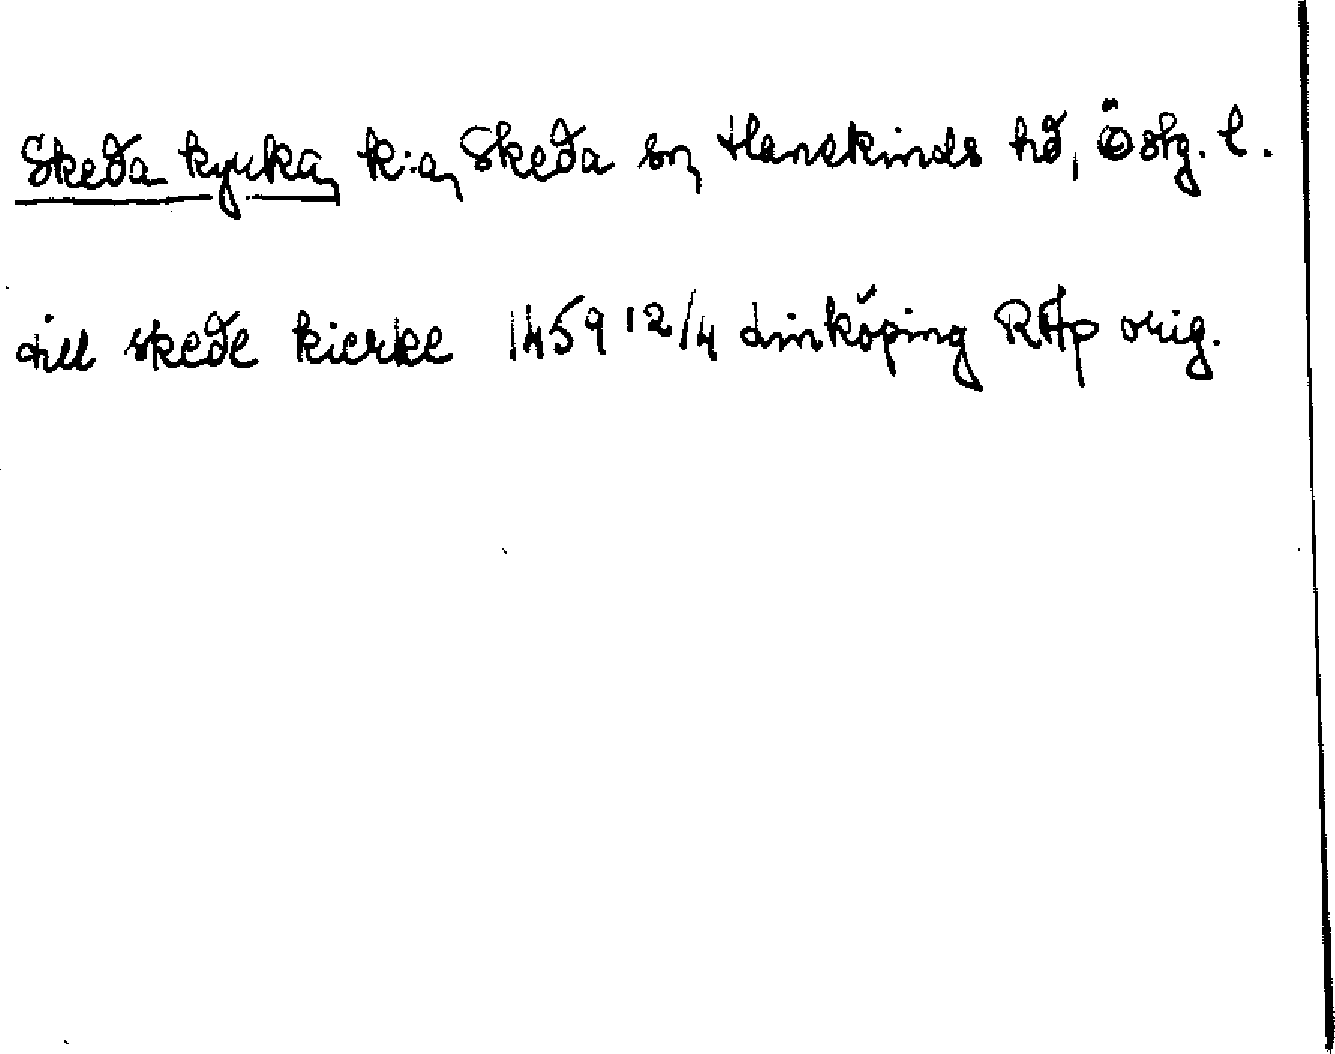 Skeda kyrka, k:a, Skeda sn, Hanekinds hd, Östg. l.
till skede kierke 1459 12/4 Linköping RAp orig.